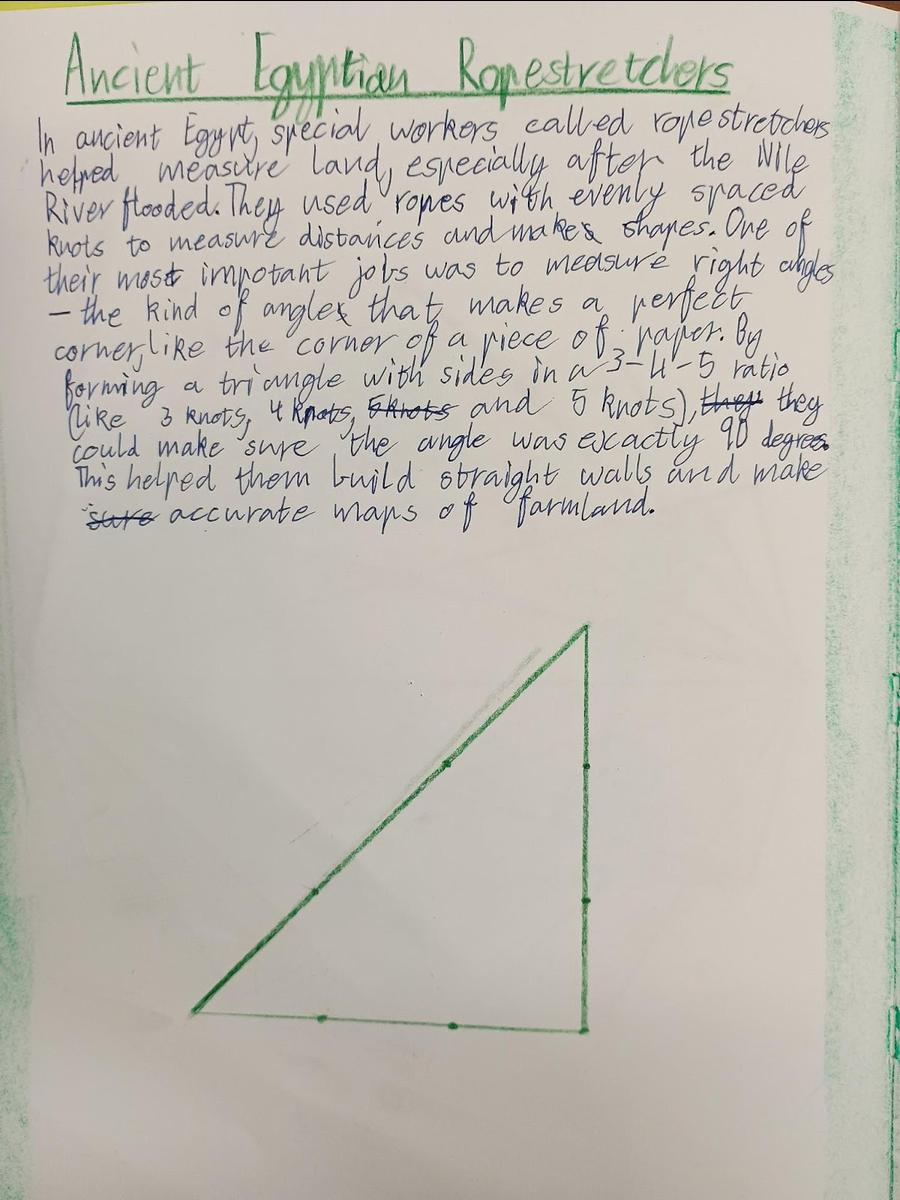 Ancient Egyptian Ropestretchers
In ancient Egypt, special workers called ropestretchers
helped measure land, especially after the Nile
River flooded. They used ropes with evenly spaced
knots to measure distances and make shapes. One of
their most impotant jobs was to measure right angles
– the kind of angle that makes a perfect
corner, like the corner of a piece of paper. By
forming a triangle with sides in a 3-4-5 ratio
(like 3 knots, 4 knots, 5 knots and 5 knots), they they
could make sure the angle was exactly 90 degrees.
This helped them build straight walls and make
sure accurate maps of farmland.